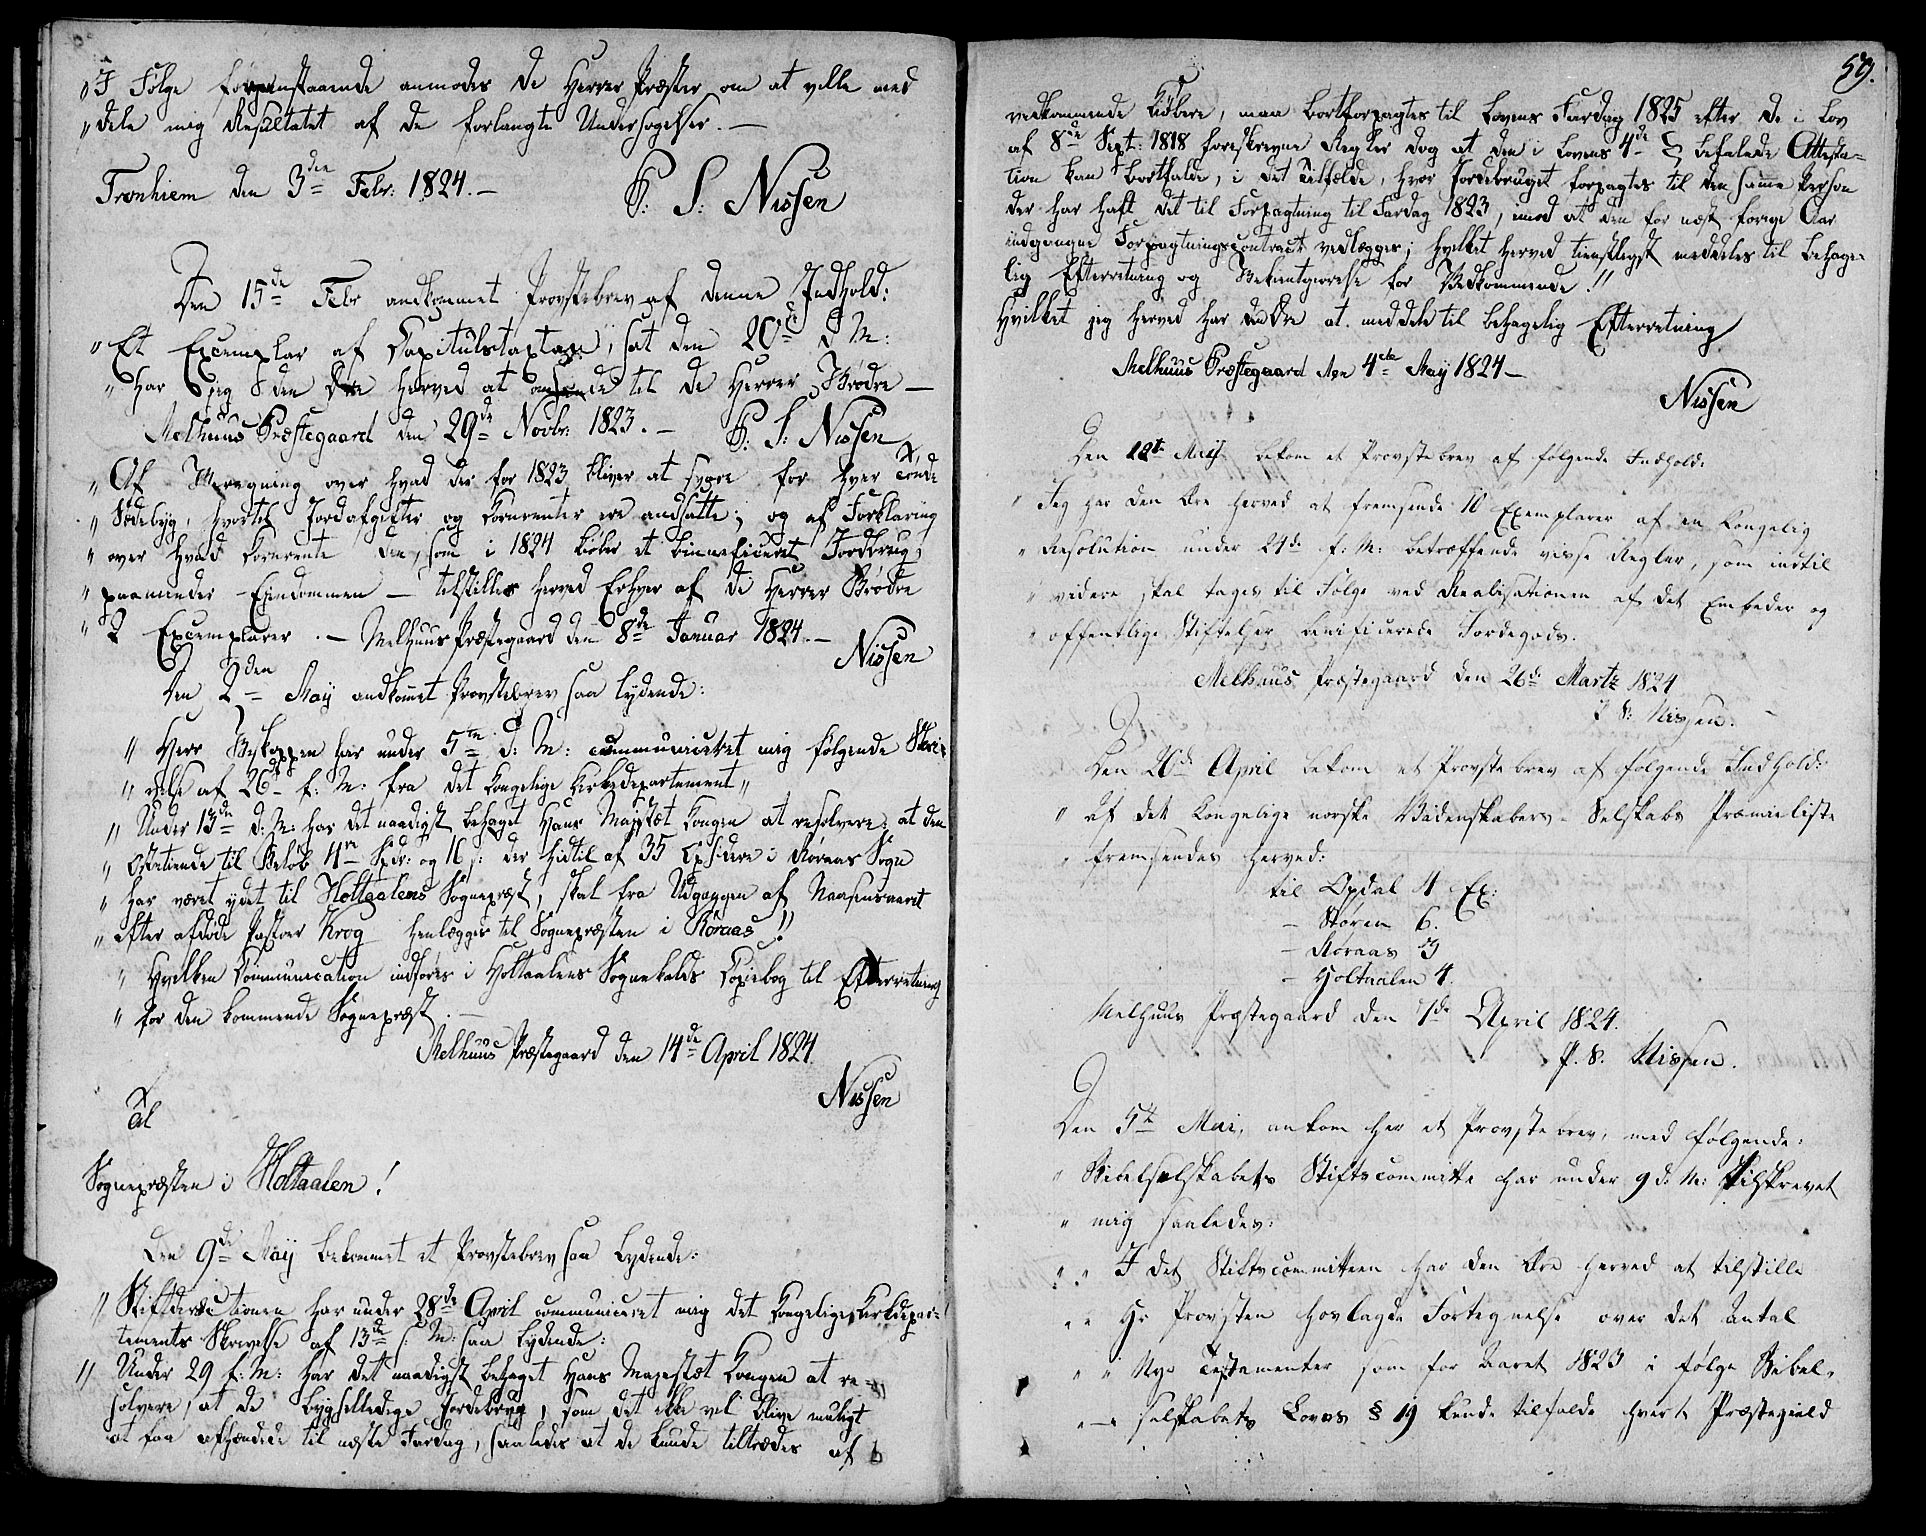 „I Følge foranstaaende anmodes de Herrer Præster om at ville med
„dele mig Resultatet af de forlangte Undersøgelser. —
Tronhiem den 3die Febr: 1824. —
P: S: Nissen
Den 15de Febr andkommet Provstebrev af denne Indhold:
„Et Exemplar af Capitulstaxten, sat den 20de d: M:
„har jeg den Ære herved at omsende til de Herrer Brødre —
Melhuus Præstegaard den 29de Novbr: 1823. — P: S: Nissen
„Af Beregning over hvad der for 1823 bliver at svare for hver Tønde
„Sædebyg, hvortil Jordafgifter og Kornrenter ere andsatte; og af Forklaring
„over hvad Kornrente den, som i 1824 kiøber et beneficeret Jordbrug,
„paa Eiendommen — tilstilles herved Enhver af de Herrer Brødre
„2 Exemplarer. — Melhuus Præstegaard den 8de Januar 1824. —
Nissen
Den 2den May andkomet Provstebrev saa lydende:
„Herr Biskoppen har under 5te d: M: communiceret mig følgende Skri-
„velse af 26de f: M: fra det Kongelige Kirkedepartement„
„Under 13de d: M: har det naadigst behaget Hans Majestæt Kongen at resolvere, at den
„Ostetiende til Beløb 4re Spdr: og 16 s: der hidtil af 35 Opsidere i Røraas Sogn
„har været ydet til Holtaalens Sognepræst, skal fra Udgangen af Naadsensaaret
„efter afdøde Pastoer Krog henlægges til Sognepræsten i Røraas!!
„Hvilken Communication indføres i Holtaalens Sognekalds Copiebog til Efterretning
„for den kommende Sognepræst. —
Melhuus Præstegaard den 14de April 1824.
Nissen
Til
Sognepræsten i Holtaalen!
Den 9de May bekommet et Provstebrev saa lydende:
„Stiftdirectionen har under 28de April communiceret mig det Kongelige Kirkedepar-
tements Skrivelse af 13de s: M: saa lydende:
„Under 29 f: M: har det naadigst behaget Hans Majestæt Kongen at re-
solvere, at de bygselledige Jordebrug, som det ikke vel blive muligt
at faa afhændede til næste Fardag, saaledes at de kunde tiltrædes af
59.
vedkommende Kiøbere, maa bortforpagtes til Lovens Fardag 1825 efter de i Lov
af 8de Sept: 1818 foreskrevne Regler dog at den i Lovens 4de § befalede Attesta-
tion kan bortfalde, i det Tilfælde, hvor Jordebruget forpagtes til den samme Person
der har haft det til Forpagtning til Fardag 1823, mod at den for næst forrige Aar
indgangne Forpagtningscontract vedlægges; hvilket herved tienstligst meddeles til behage-
lig Efterretning og Bekientgiørelse for Vedkommende!!
Hvilket jeg herved har den Ære at meddele til behagelig Efterretning
Melhuus Præstegaard den 4de May 1824 —
Nissen
Den 12te Maij bekom et Provstebrev af følgende Indhold:
„Jeg har den Ære herved at fremsende 10 Exemplarer af en Kongelig
„Resolution under 24de f: M: betræffende visse Regler, som indtil
„videre skal tages til Følge ved Realisationen af det Embeder og
„offentlige Stiftelser beneficerede Jordegods.
Melhuus Præstegaard den 26de Martz 1824
P S: Nissen. —
Den 26de April bekom et Provstebrev af følgende Indhold:
„Af det Kongelige norske Videnskabers-Selskabs Præmieliste
„fremsendes herved:
til Opdal 4 Ex:
— Støren 6.
— Røraas 3
— Holtaalen 4.
Melhuus Præstegaard den 7de April 1824.
P. S. Nissen.
Den 5te Mai, ankom her et Provstebrev, med følgende:
„Bibelselskabets Stiftscommitte har under 9 d: M: tilskrevet
„mig saaledes:
„„I det Stiftscommitteen har den Ære herved at tilstille
„„Hr Provsten hoslagde Fortegnelse over det Antal
„„Nye Testamenter som for Aaret 1823 i følge Bibel„
„— selskabets Loves § 19 kunde tilfalde hvert Præstegield